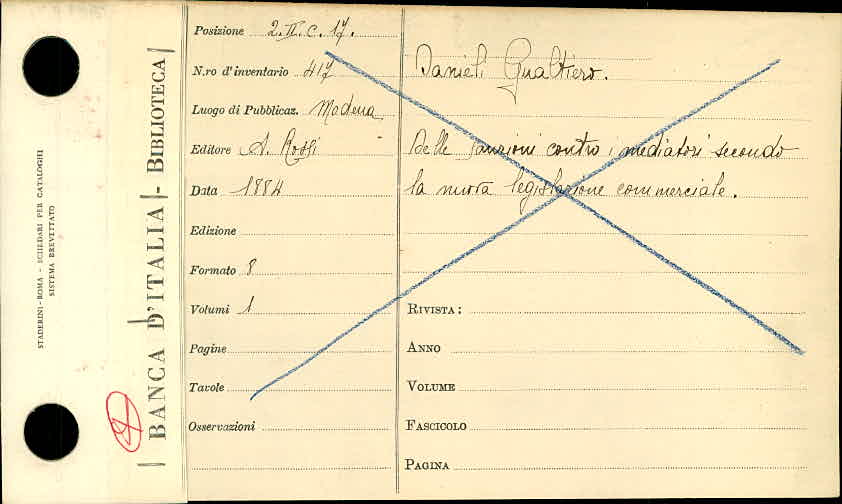 STADERINI - ROMA - SCHEDARI PER CATALOGHI
SISTEMA BREVETTATO
BANCA D'ITALIA - BIBLIOTECA
Posizione 2.II.C.17.
N.ro d'inventario 417
Luogo di Pubblicaz. Modena
Editore A. Rossi
Data 1884
Edizione
Formato 8
Volumi 1
Pagine
Tavole
Osservazioni
Danieli Gualtiero.
Delle sanzioni contro i mediatori secondo
la nuova legislazione commerciale.
RIVISTA:
ANNO
VOLUME
FASCICOLO
PAGINA